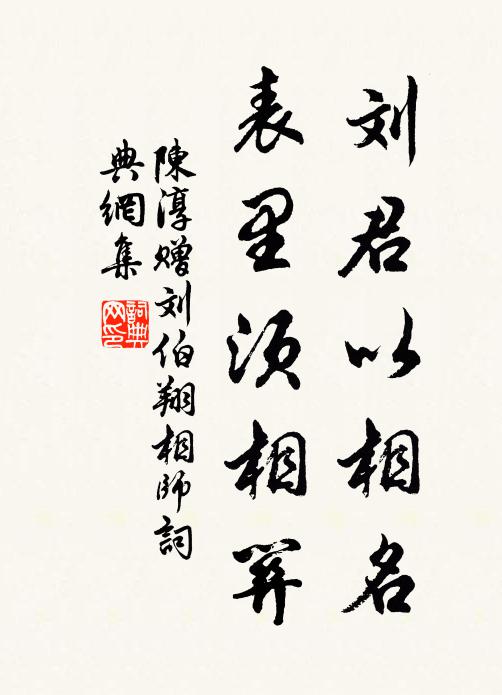 刘君以相名
表里须相
陳淳赠刘伯翔相師詞
典網集
詞典
网印